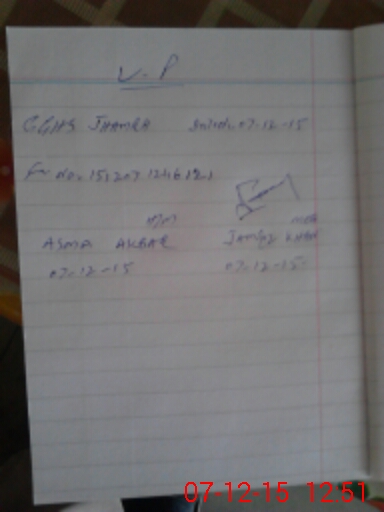 V-P
GGHS JHAMRA Dated. 07-12-15
No. 15120712461
H/M MEA
ASMA AKBAR KHAN
07-12-15 07-12-15
07-12-15 12:51